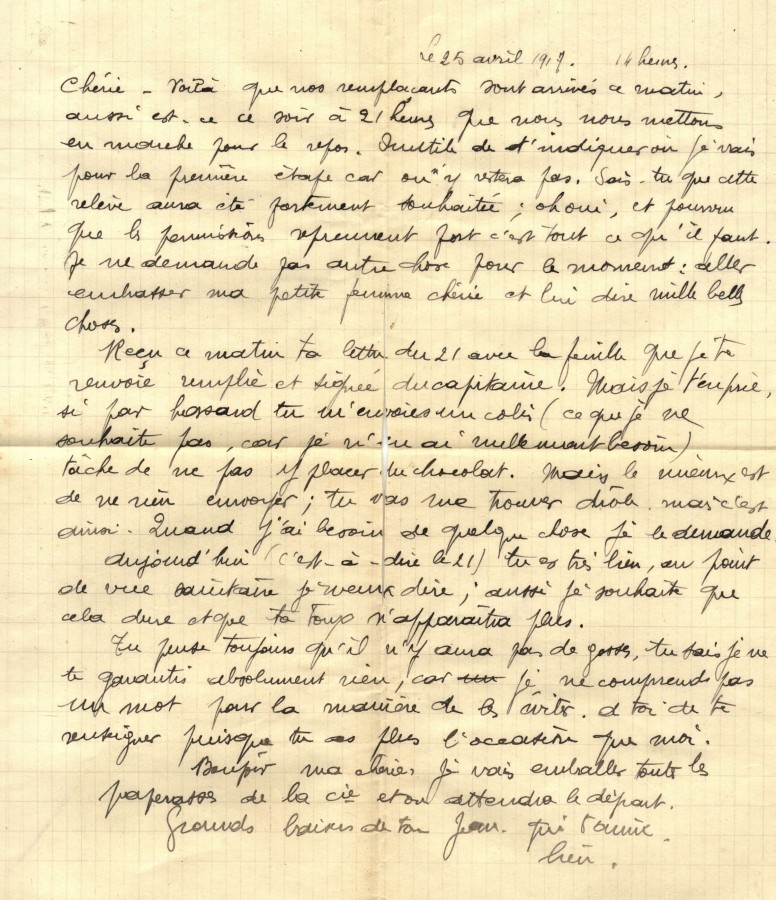 Le 25 avril 1917. 14 heures.
Chérie - Voilà que nos remplaçants sont arrivés ce matin,
aussi est-ce ce soir à 21 heures que nous nous mettons
en marche pour le repos. Inutile de t'indiquer où je vais
pour la première étape car on n'y restera pas. Sais-tu que cette
relève aura été fortement souhaitée ; oh oui, et pourvu
que les permissions reprennent fort c'est tout ce qu'il faut.
Je ne demande pas autre chose pour le moment : aller
embrasser ma petite femme chérie et lui dire mille belles
choses.
Reçu ce matin ta lettre du 21 avec la feuille que je te
renvoie remplie et signée du capitaine. Mais je t'en prie,
si par hasard tu m'envoies un colis (ce que je ne
souhaite pas, car je n'en ai nullement besoin)
tâche de ne pas y placer du chocolat. Mais le mieux est
de ne rien envoyer ; tu vas me trouver drôle. mais c'est
ainsi. Quand j'ai besoin de quelque chose je le demande.
aujourd'hui (c'est-à-dire le 21) tu es très bien, au point
de vue sanitaire je veux dire ; aussi je souhaite que
cela dure et que ta toux n'apparaîtra plus.
Tu pense toujours qu'il n'y aura pas de gosses, tu sais je ne
te garantis absolument rien, car un je ne comprends pas
un mot pour la manière de les éviter. à toi de te
renseigner puisque tu as plus l'occasion que moi.
Bonsoir ma chérie, je vais emballer toutes les
paperasses de la cie et on attendra le départ.
Grands baisers de ton Jean. qui t'aime
bien.